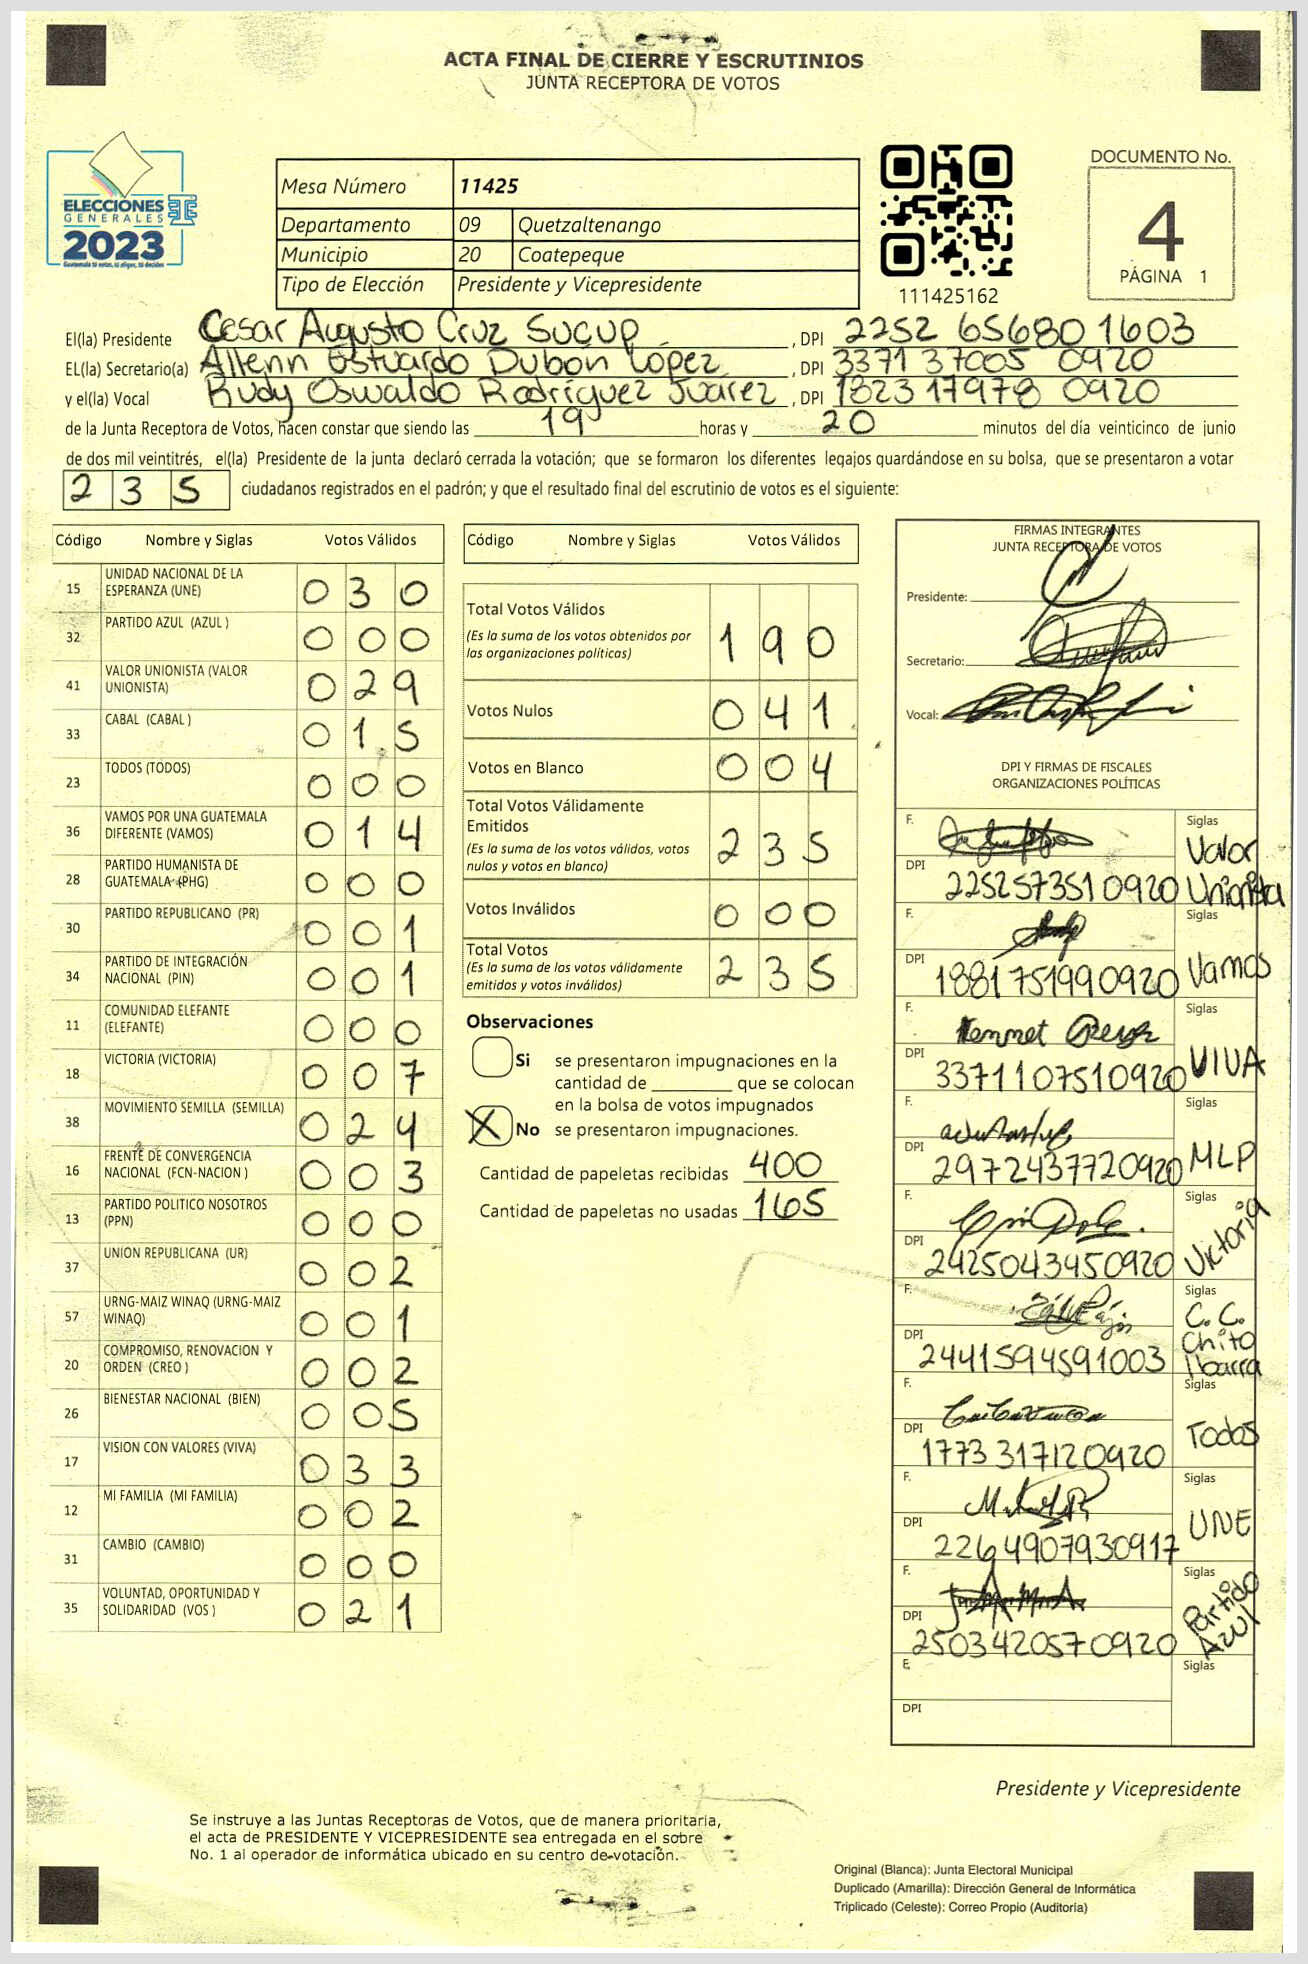 ACTA FINAL DE CIERRE Y ESCRUTINIOS
JUNTA RECEPTORA DE VOTOS
ELECCIONES
GENERALES
2023
Mesa Número 11425
Departamento 09 Quetzaltenango
Municipio 20 Coatepeque
Tipo de Elección Presidente y Vicepresidente
111425162
DOCUMENTO No.
4
PÁGINA 1
El(la) Presidente Cesar Augusto Cruz Sucup, DPI 2252 65680 1603
EL(la) Secretario(a) Allenn Estuardo Dubon Lopez, DPI 3371 37005 0920
y el(la) Vocal Rudy Oswaldo Rodríguez Juárez, DPI 1823 17978 0920
de la Junta Receptora de Votos, hacen constar que siendo las 19 horas y 20 minutos del día veinticinco de junio
de dos mil veintitrés, el(la) Presidente de la junta declaró cerrada la votación; que se formaron los diferentes legajos guardándose en su bolsa, que se presentaron a votar
235 ciudadanos registrados en el padrón; y que el resultado final del escrutinio de votos es el siguiente:
Código Nombre y Siglas Votos Válidos
15 UNIDAD NACIONAL DE LA
ESPERANZA (UNE) 030
32 PARTIDO AZUL (AZUL ) 000
41 VALOR UNIONISTA (VALOR
UNIONISTA) 029
33 CABAL (CABAL ) 015
23 TODOS (TODOS) 000
36 VAMOS POR UNA GUATEMALA
DIFERENTE (VAMOS) 014
28 PARTIDO HUMANISTA DE
GUATEMALA (PHG) 000
30 PARTIDO REPUBLICANO (PR) 001
34 PARTIDO DE INTEGRACIÓN
NACIONAL (PIN) 001
11 COMUNIDAD ELEFANTE
(ELEFANTE) 000
18 VICTORIA (VICTORIA) 007
38 MOVIMIENTO SEMILLA (SEMILLA) 024
16 FRENTE DE CONVERGENCIA
NACIONAL (FCN-NACION ) 003
13 PARTIDO POLITICO NOSOTROS
(PPN) 000
37 UNION REPUBLICANA (UR) 002
57 URNG-MAIZ WINAQ (URNG-MAIZ
WINAQ) 001
20 COMPROMISO, RENOVACION Y
ORDEN (CREO ) 002
26 BIENESTAR NACIONAL (BIEN) 005
17 VISION CON VALORES (VIVA) 033
12 MI FAMILIA (MI FAMILIA) 002
31 CAMBIO (CAMBIO) 000
35 VOLUNTAD, OPORTUNIDAD Y
SOLIDARIDAD (VOS ) 021
Código Nombre y Siglas Votos Válidos
Total Votos Válidos
(Es la suma de los votos obtenidos por
las organizaciones políticas) 190
Votos Nulos 041
Votos en Blanco 004
Total Votos Válidamente
Emitidos
(Es la suma de los votos válidos, votos
nulos y votos en blanco) 235
Votos Inválidos 000
Total Votos
(Es la suma de los votos válidamente
emitidos y votos inválidos) 235
Observaciones
Si se presentaron impugnaciones en la
cantidad de ________ que se colocan
en la bolsa de votos impugnados
X No se presentaron impugnaciones.
Cantidad de papeletas recibidas 400
Cantidad de papeletas no usadas 165
FIRMAS INTEGRANTES
JUNTA RECEPTORA DE VOTOS
Presidente:
Secretario:
Vocal:
DPI Y FIRMAS DE FISCALES
ORGANIZACIONES POLÍTICAS
F. Siglas
Valor
DPI 2252573510920 Unionista
F. Siglas
DPI 1881751990920 Vamos
F. Siglas
DPI 3371107510920 VIVA
F. Siglas
DPI 2972437720920 MLP
F. Siglas
DPI 2425043450920 Victoria
F. Siglas
C. C.
Chito
DPI 2441594591003 Ibarra
F. Siglas
DPI 1773317120920 Todos
F. Siglas
DPI 2264907930917 UNE
F. Siglas
Partido
DPI 2503420570920 Azul
F. Siglas
DPI
Presidente y Vicepresidente
Se instruye a las Juntas Receptoras de Votos, que de manera prioritaria,
el acta de PRESIDENTE Y VICEPRESIDENTE sea entregada en el sobre
No. 1 al operador de informática ubicado en su centro de votación.
Original (Blanca): Junta Electoral Municipal
Duplicado (Amarilla): Dirección General de Informática
Triplicado (Celeste): Correo Propio (Auditoría)